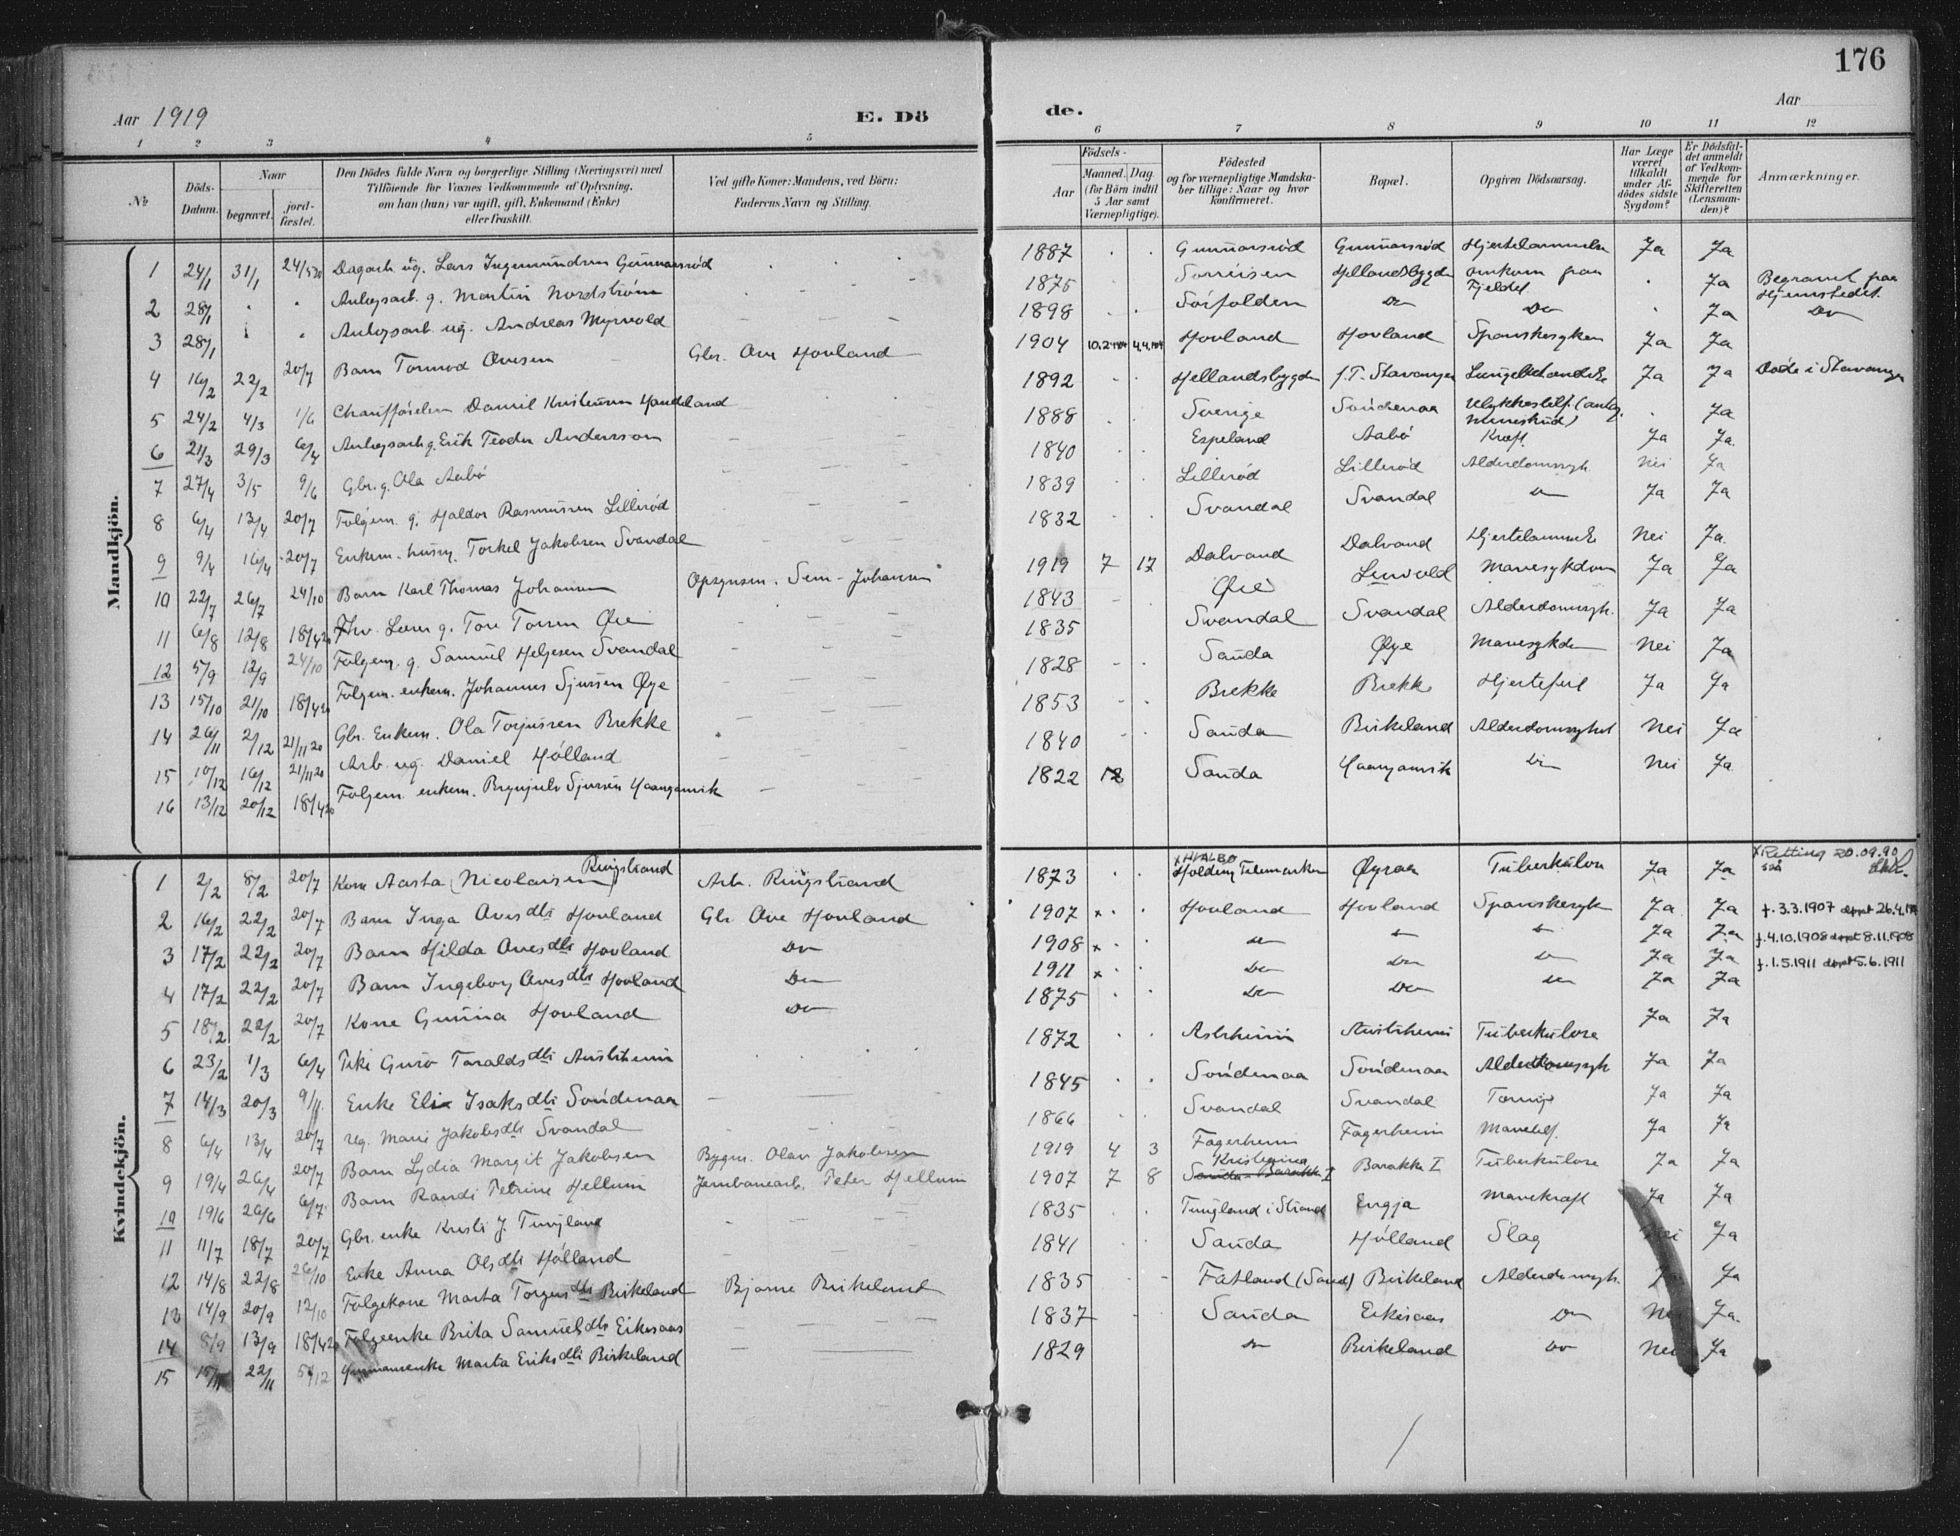 176
Aar 1919
E. Dö
de.
Aar
1 2 3 4 5 6 7 8 9 10 11 12
№
Döds-Datum.
Naar
begravet.
jord-fæstet.
Den Dödes fulde Navn og borgerlige Stilling (Næringsvei) med
Tilföiende for Voxnes Vedkommende af Oplysning,
om han (hun) var ugift, gift, Enkemand (Enke)
eller fraskilt.
Ved gifte Koner: Mandens, ved Börn:
Faderens Navn og Stilling.
Födsels-
Aar
Maaned. Dag.
(for Börn indtil
5 Aar samt
Værnepligtige).
Födested
og for værnepligtige Mandska-
ber tillige: Naar og hvor
konfirmeret.
Bopæl.
Opgiven Dödsaarsag.
Har Læge
været
tilkaldt
under Af-
dödes sidste
Sygdom?
Er Dödsfal-
det anmeldt
af Vedkom-
mende for
Skifteretten
(Lensman-
den)?
Anmærkninger.
Mandkjön.
1 24/1 31/1 24/5 20 Dagarb. ug. Lars Ingemundsen Gunnarsröd 1887 Gunnarsröd Gunnarsröd Hjertelammelse Ja Ja
2 28/1 Anlegsarb. g. Martin Nordström 1875 Hellandsbygden Omkom paa Fjeldet Ja Begravet paa Hjemstedet
3 28/1 Anlegsarb. ug. Andreas Myrvold 1898 Sörfolden Do Do Ja Do
4 16/2 22/2 20/7 Barn Tormod Ovesen Gbr. Ove Hovland 1904 Hovland Hovland Spanskesyken Ja Ja
5 24/2 4/3 1/6 Chauffören Daniel 1892 Hellandsbygden Stavanger Ja Ja Döde i Stavanger
6 21/3 29/3 6/4 Anlegsarb. g. Erik Teodor Andersson 1888 Sverige Söndenaa Ja
7 27/4 3/5 9/6 Gbr. g. Ola Aabö 1840 Espeland Aabö Kræft Ja Ja
8 6/4 13/4 20/7 Folgem. g. Haldor Rasmussen Lilleröd 1839 Lilleröd Lilleröd Alderdomssyk. Nei Ja
9 9/4 16/4 20/7 Enkem. husm. Torkel Jakobsen Svandal 1832 Svandal Svandal Do Ja Ja
10 22/7 26/7 24/10 Barn Karl Thomas Johansen Opsynsm. Sem-Johansen 1919 7 17 Dalvand Dalvand Hjertelammelse Nei Ja
11 6/8 12/8 18/4 20 Lærer g. Tore Toresen Øie 1843 Øie Mavesykdom Ja Ja
12 5/9 12/9 24/10 Folgem. g. Samuel Helgesen Svandal 1835 Svandal Svandal Alderdomssyk. Ja Ja
13 15/10 21/10 18/4 20 Folgem. enkem. Johannes Sjursen Øye 1828 Sauda Øye Mavesykdom Nei Ja
14 26/11 2/12 21/11 20 Gbr. Enkem. Ola Torjussen Brekke 1853 Brekke Brekke Hjertefeil Ja Ja
15 10/12 16/12 21/11 20 Arb. ug. Daniel Hölland 1840 Sauda Birkeland Alderdomssykd. Nei Ja
16 13/12 20/12 18/4 20 Folgem. enkem. Brynjulv Sjursen 1822 12 Sauda Do Nei Ja
Kvindekjön.
1 2/2 8/2 20/7 Kone Aasta (Nicolaisen) Ringstrand Arb. Ringstrand 1873 Telemarken Øyraa Tuberkulose Ja Ja x Retting 20.09.90
2 16/2 22/2 20/7 Barn Inga Ovesdtr Hovland Gbr Ove Hovland 1907 x Hovland Hovland Spanskesyk Ja Ja f. 3.3.1907 døpt 26.4.
3 17/2 22/2 20/7 Barn Hilda Ovesdtr Hovland Do 1908 x Do Do Do Ja Ja f. 4.10.1908 døpt 8.11.1908
4 17/2 22/2 20/7 Barn Ingeborg Ovesdtr Hovland Do 1911 x Do Do Do Ja Ja f. 1.5.1911 døpt 5.6.1911
5 18/2 22/2 20/7 Kone Gunna Hovland Do 1875 Do Do Do Ja Ja
6 23/2 1/3 6/4 Pike Guro Taraldsdtr Austrheim 1872 Austrheim Tuberkulose Ja Ja
7 14/3 20/3 9/11 Enke Eli Isaksdtr Söndenaa 1845 Söndenaa Söndenaa Alderdomssyk Ja Ja
8 6/4 13/4 20/7 ug. Marie Jakobsdtr Svandal 1866 Svandal Svandal Ja Ja
9 19/4 26/4 20/7 Barn Lydia Margit Jakobsen Bygm. Olav Jakobsen 1919 4 3 Fagerheim Fagerheim Ja Ja
10 19/6 26/6 6/7 Barn Randi Petrine Hellum Jernbanearb. Peter Hellum 1907 7 8 Kristiania Sauda Barakke I Barakke I Tuberkulose Ja Ja
11 11/7 18/7 20/7 Gbr. enke Kristi J. Tungland 1835 Tungland i Strand Engja Mavekræft Ja Ja
12 14/8 22/8 26/10 Enke Anna Olsdtr Hölland 1841 Sauda Hölland Slag Nei Ja
13 14/9 20/9 12/10 Folgekone Marta Torgersdtr Birkeland Bjarne Birkeland 1835 Fatland (Sand) Birkeland Alderdomssyk. Ja Ja
14 8/9 13/9 18/4 20 Folgeenke Brita Samuelsdtr Eikesaas 1837 Sauda Eikesaas Do Nei Ja
15 15/11 22/11 5/12 Marta Eriksdtr Birkeland 1829 Do Birkeland Do Nei Ja